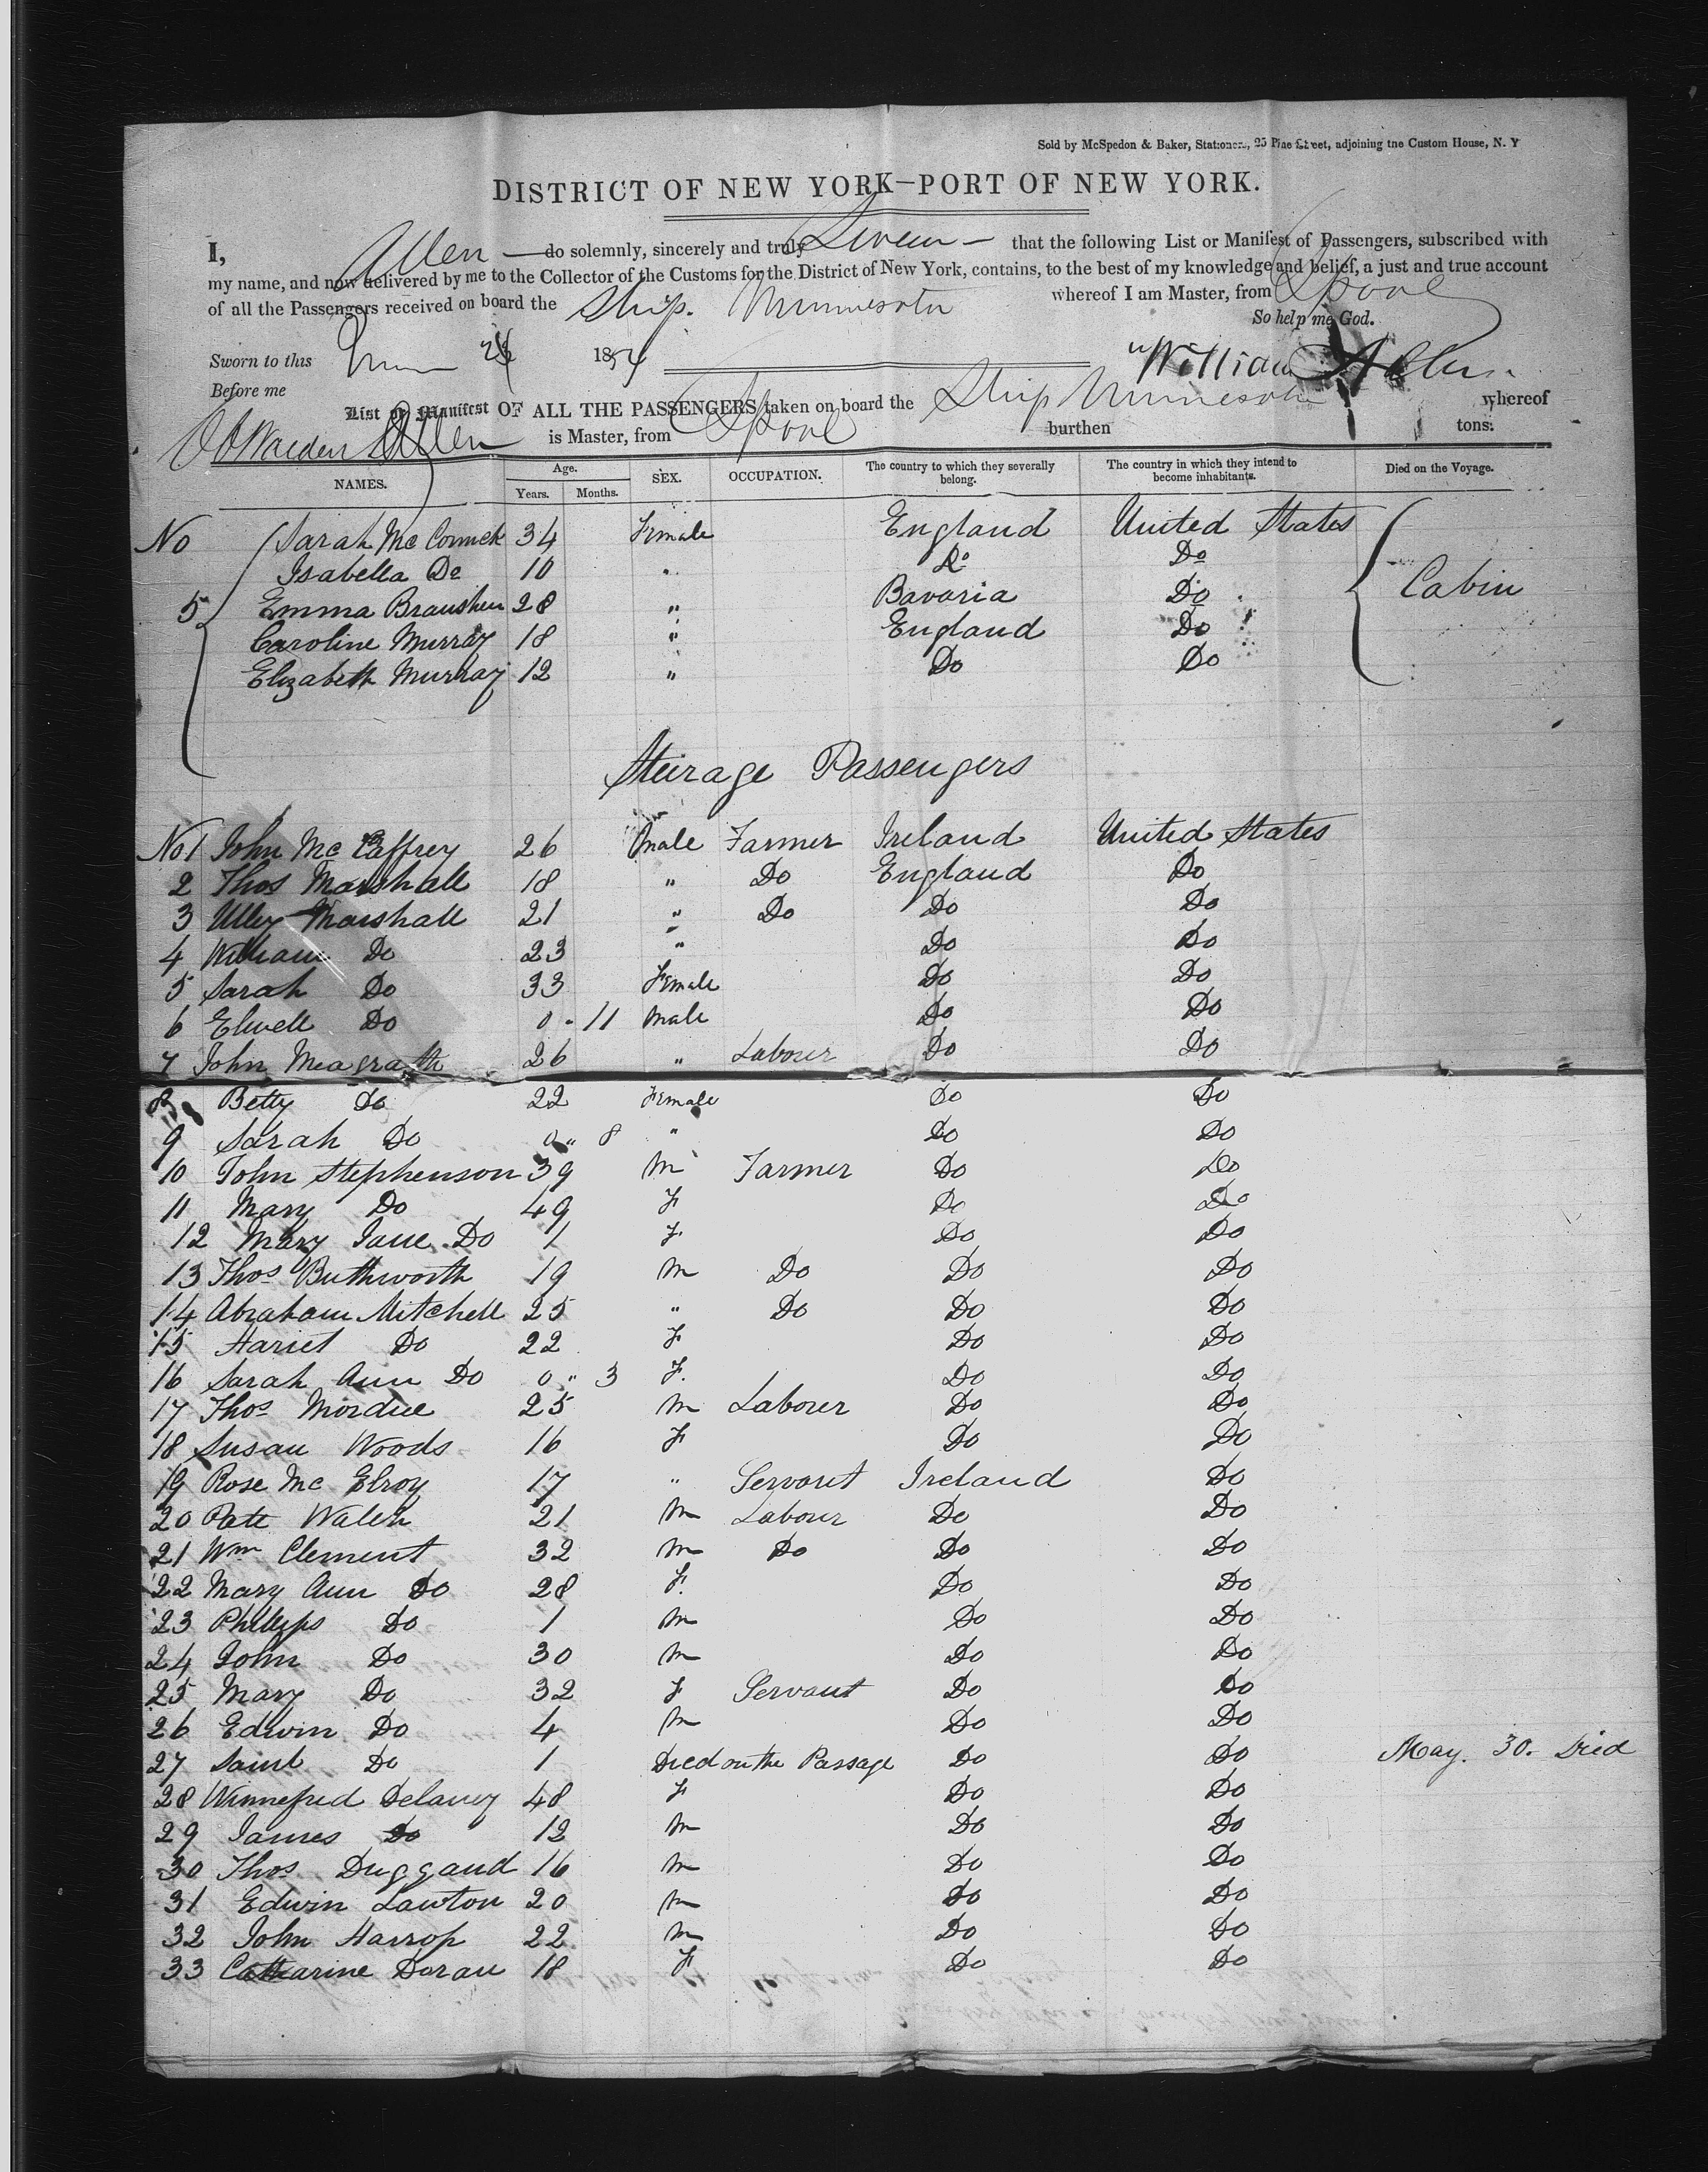 Sold by McSpedon & Baker, Stationers, 25 Pine Street, adjoining the Custom House, N. Y
DISTRICT OF NEW YORK—PORT OF NEW YORK.
I, Allen — do solemnly, sincerely and truly Swear — that the following List or Manifest of Passengers, subscribed with
my name, and now delivered by me to the Collector of the Customs for the District of New York, contains, to the best of my knowledge and belief, a just and true account
of all the Passengers received on board the Ship. Minnesota whereof I am Master, from Lpool
So help me God.
Sworn to this 1854 William Allen
Before me
List or Manifest OF ALL THE PASSENGERS taken on board the Ship Minnesota whereof
Allen is Master, from Lpool burthen tons.
NAMES. Age. Years. Months. SEX. OCCUPATION. The country to which they severally belong. The country in which they intend to become inhabitants. Died on the Voyage.
No Sarah Mc Cormick 34 Female England United States
Isabella Do 10 " Do Do
5 Emma 28 " Bavaria Do Cabin
Caroline Murray 18 " England Do
Elizabeth Murray 12 " Do Do
Steirage Passengers
No 1 John Mc Caffrey 26 Male Farmer Ireland United States
2 Thos Marshall 18 " Do England Do
3 Marshall 21 " Do Do Do
4 William Do 23 " Do Do
5 Sarah Do 33 Female Do Do
6 Elwell Do 0 - 11 Male Do Do
7 John Meagrath 26 " Labourer Do Do
8 Betty Do 22 Female Do Do
9 Sarah Do 0 " 8 " Do Do
10 John Stephenson 39 M Farmer Do Do
11 Mary Do 49 F Do Do
12 Mary Jane Do 1 F. Do Do
13 Thos Buthworth 19 M Do Do Do
14 Abraham Mitchell 25 " Do Do Do
15 Hariet Do 22 F Do Do
16 Sarah Ann Do 0 " 3 F. Do Do
17 Thos Mordue 25 M Labourer Do Do
18 Susan Woods 16 F Do Do
19 Rose Mc Elroy 17 " Servant Ireland Do
20 Patt Walsh 21 M Labourer Do Do
21 Wm Clement 32 M Do Do Do
22 Mary Ann Do 28 F. Do Do
23 Phillips Do 1 M Do Do
24 John Do 30 M Do Do
25 Mary Do 32 F Servant Do Do
26 Edwin Do 4 M Do Do
27 Saml Do 1 Died on the Passage Do Do May. 30. Died
28 Winnefred Delaney 48 F Do Do
29 James Do 12 M Do Do
30 Thos Duggand 16 M Do Do
31 Edwin Lawton 20 M Do Do
32 John Harrop 22 M Do Do
33 Catharine Doran 18 F Do Do